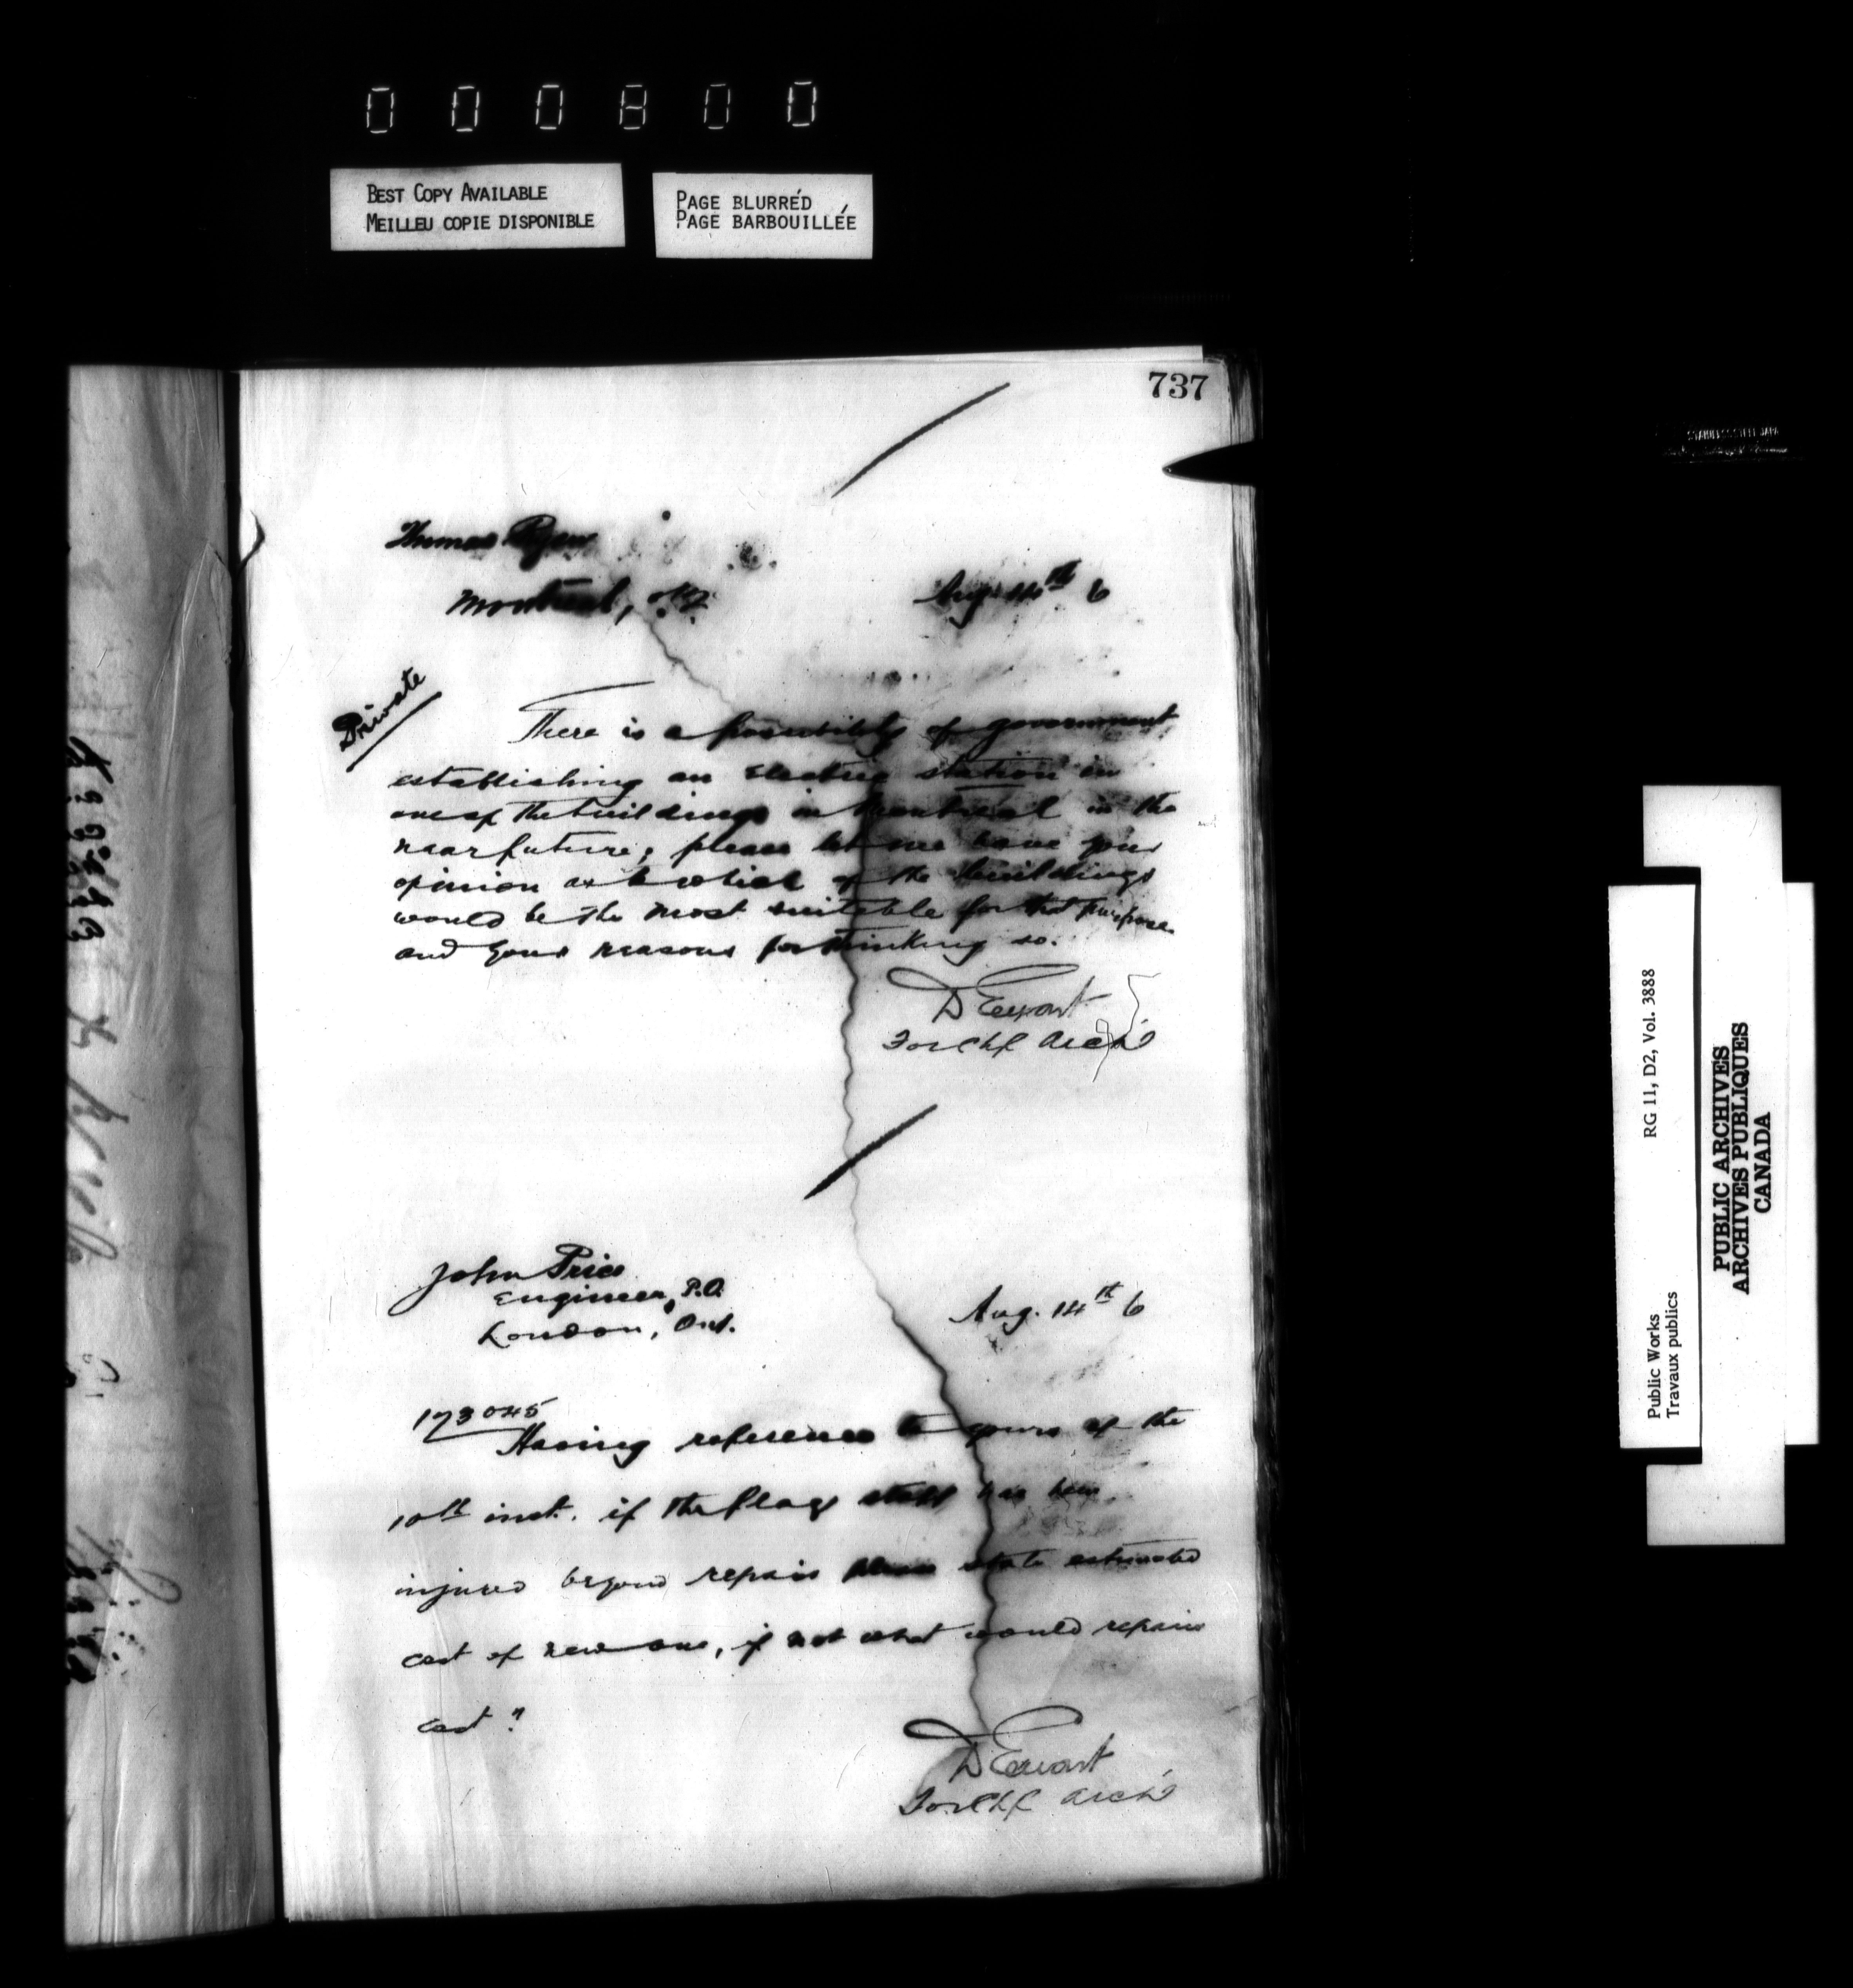 000800
BEST COPY AVAILABLE
MEILLEU COPIE DISPONIBLE
PAGE BLURRÉD
PAGE BARBOUILLÉE
737
Thomas Ryan
Montreal, P.Q.
Aug. 14th 6
Private
There is a possibility of government
establishing an Electric station in
one of the buildings in Montreal in the
near future; please let me have your
opinion as to which of the buildings
would be the most suitable for that purpose
and your reasons for thinking so.
D Ewart
Archt
John Price
Engineer, P.O.
London, Ont.
Aug. 14th 6
173045
Having reference to yours of the
10th inst. if the flag staff has been
injured beyond repair please state estimated
cost of new one, if not what would repairs
cost?
D Ewart
Archt
Public Works RG 11, D2, Vol. 3888
Travaux publics
PUBLIC ARCHIVES
ARCHIVES PUBLIQUES
CANADA